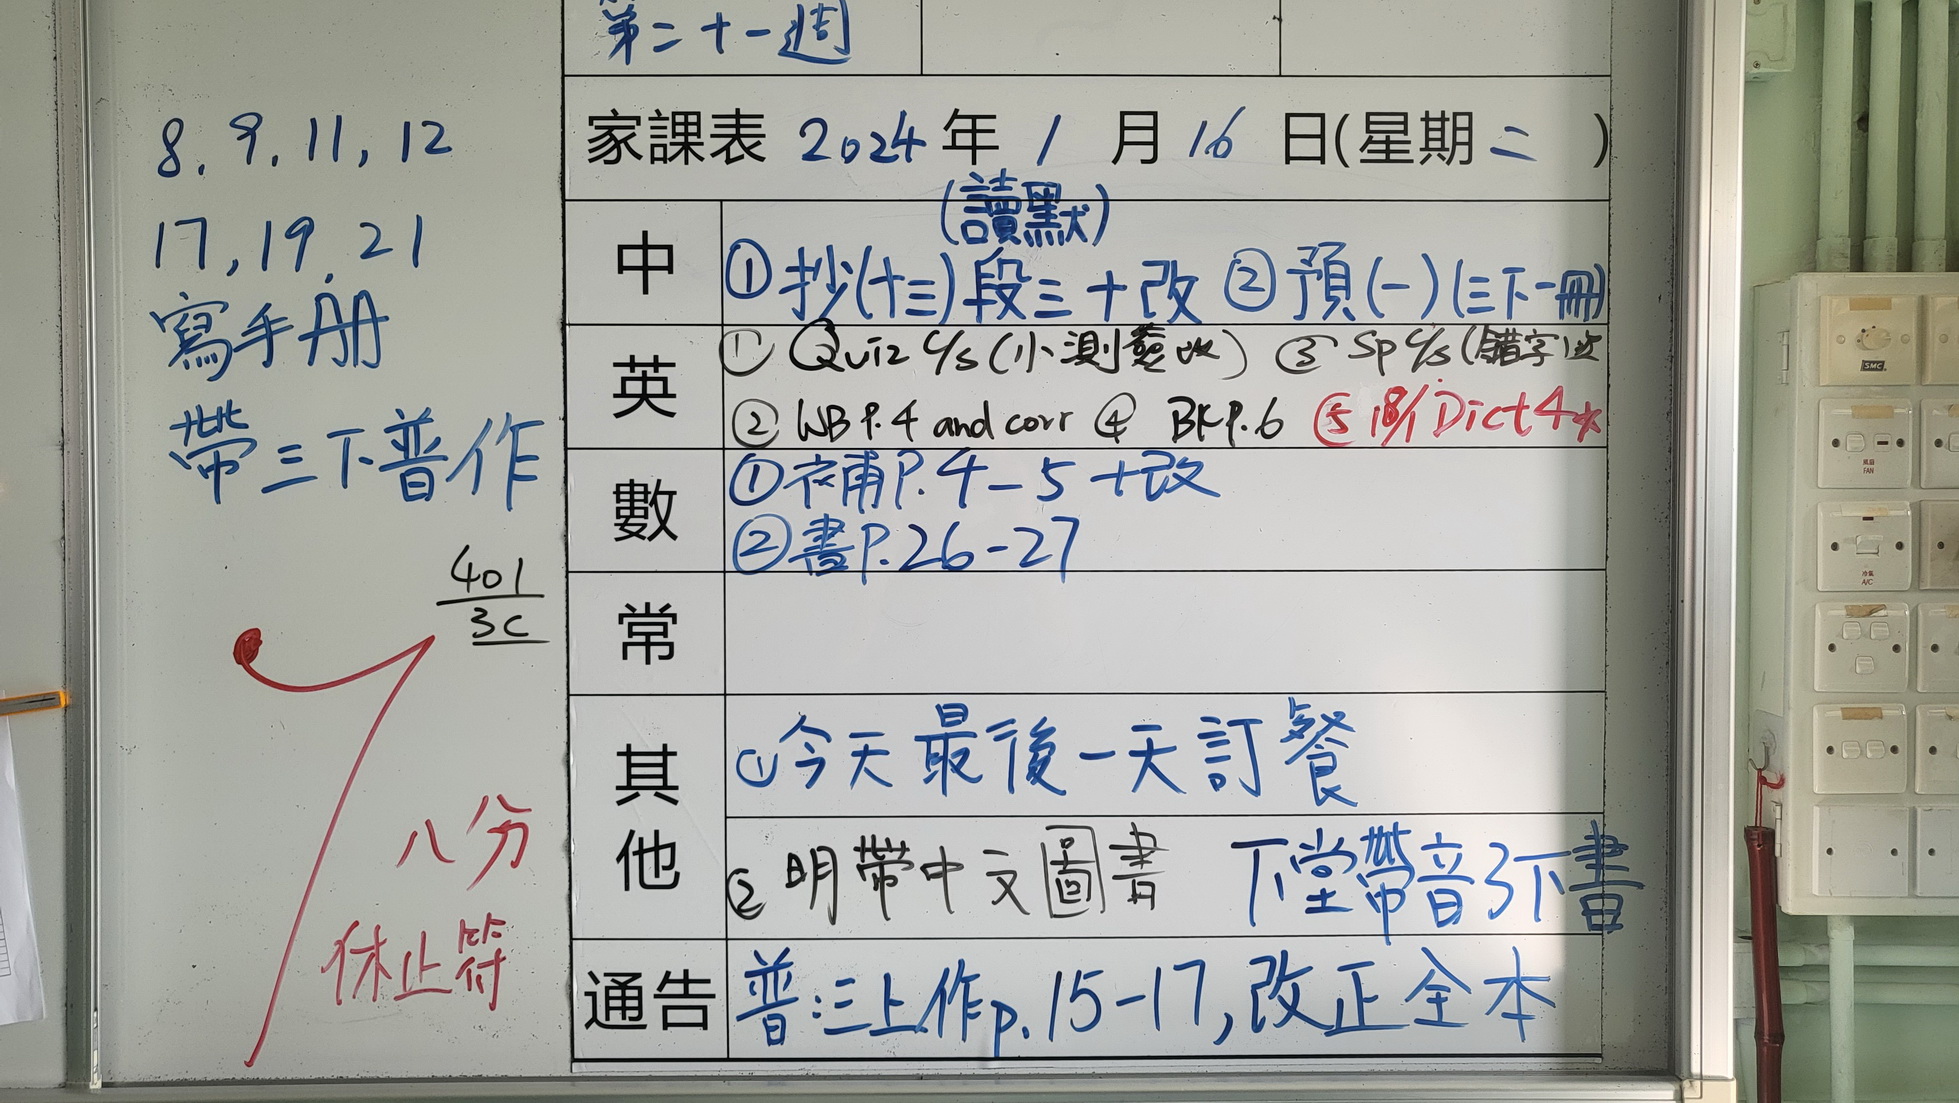 第二十一週
家課表 2024 年 1 月 16 日(星期二 )
8. 9. 11, 12
17, 19, 21
寫手冊
帶三下普作
401
3C
八分
休止符
中
(讀默)
①抄(十三)段三+改 ②預(一)(三下一冊)
英
① Quiz c/s (小測簽改) ③ Sp c/s (錯字
② WB P.4 and corr ④ BK P.6 ⑤ 18/1 Dict 4
數
①補P.4-5 +改
②書P.26-27
常
其他
①今天最後一天訂餐
②明帶中文圖書 下堂帶音3下書
通告
普:三上作p.15-17,改正全本
SMC
風扇
FAN
冷氣
A/C